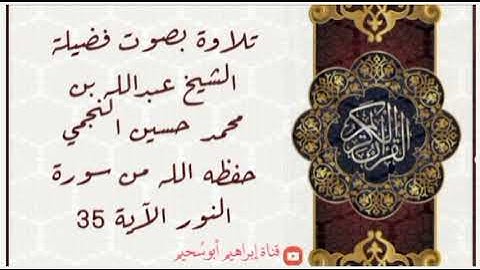 تلاوة بصوت فضيلة
الشيخ عبدالله بن
محمد حسين النجمي
حفظه الله من سورة
النور الآية 35
القرآن الكريم
قناة إبراهيم أبوسُحيم